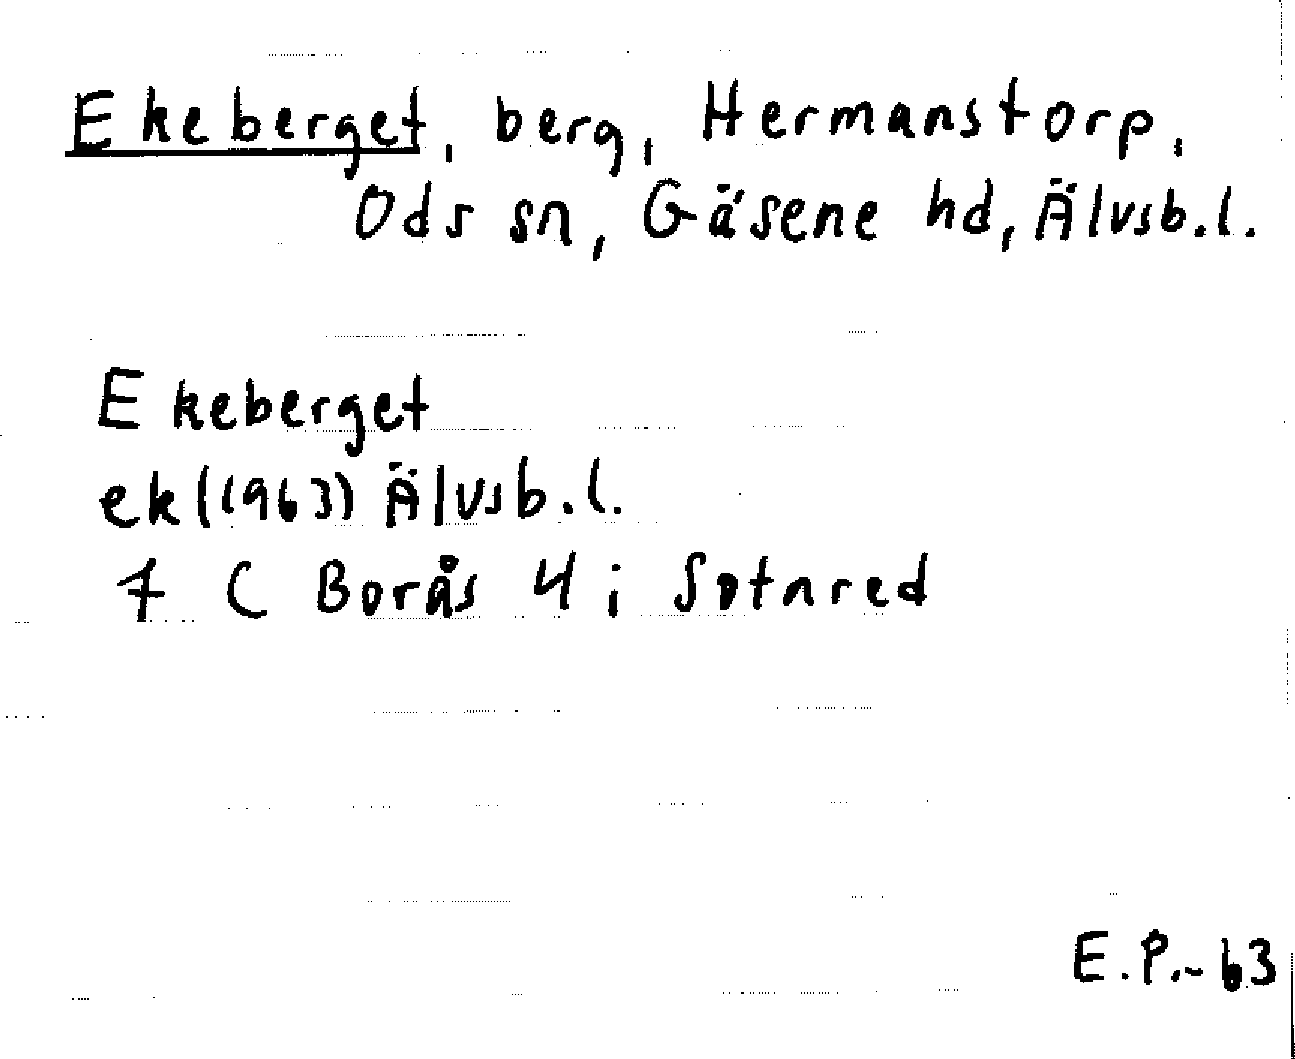 Ekeberget, berg, Hermanstorp,
Ods sn, Gäsene hd, Älvsb.l.
Ekeberget
ek (1963) Älvsb.l.
7 C Borås 4 i Sotnred
E.P.-63